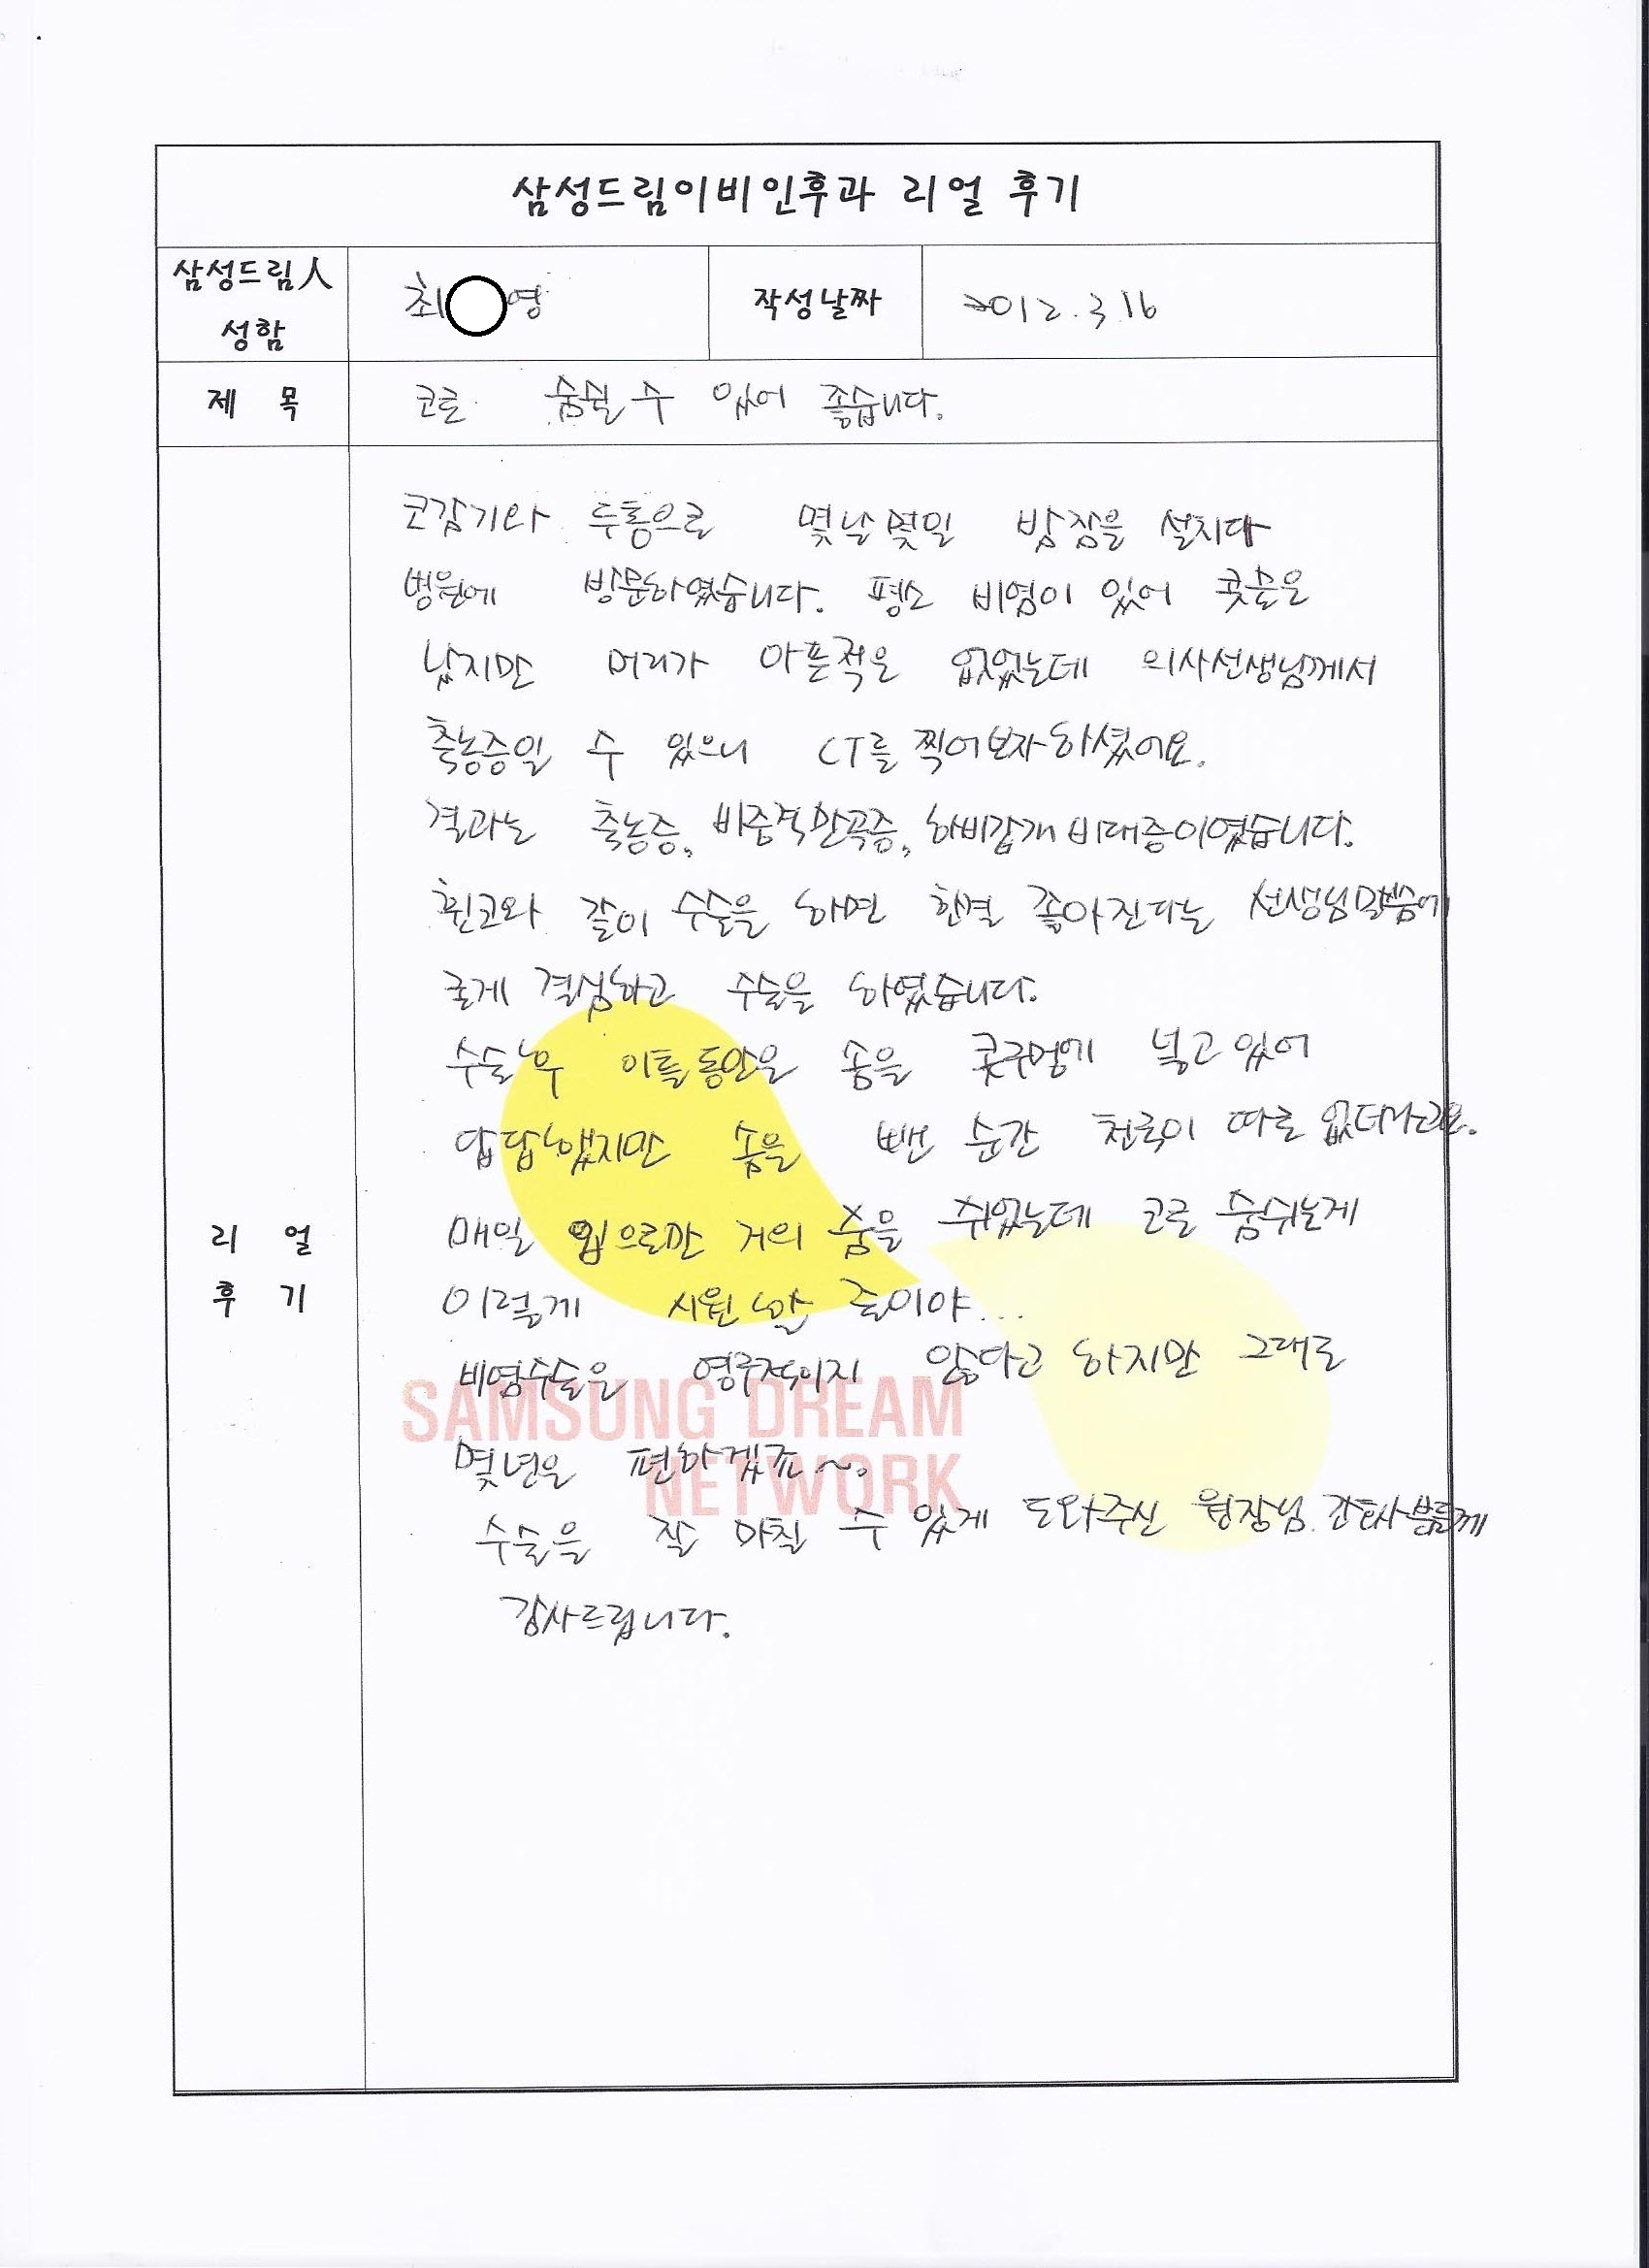 삼성드림이비인후과 리얼 후기
삼성드림人 성함
최 영
작성날짜
2012. 3. 16
제 목
코로 숨쉴 수 있어 좋습니다.
리 얼 후 기
코감기와 두통으로 몇날몇일 밤잠을 설치다
병원에 방문하였습니다. 평소 비염이 있어 콧물은
났지만 머리가 아픈적은 없었는데 의사선생님께서
축농증일 수 있으니 CT를 찍어보자하셨어요.
결과는 축농증, 비중격만곡증, 하비갑개 비대증이였습니다.
휜코와 같이 수술을 하면 한결 좋아진다는 선생님말씀에
굳게 결심하고 수술을 하였습니다.
수술후 이틀동안은 솜을 콧구멍에 넣고있어
답답했지만 솜을 뺀 순간 천국이 따로 없더라구요.
매일 입으로만 거의 숨을 쉬었는데 코로 숨쉬는게
이렇게 시원할 줄이야...
비염수술은 영구적이지 않다고 하지만 그래도
몇년은 편하겠죠~.
수술을 잘 마칠 수 있게 도와주신 원장님. 간호사분들께
감사드립니다.
SAMSUNG DREAM
NETWORK